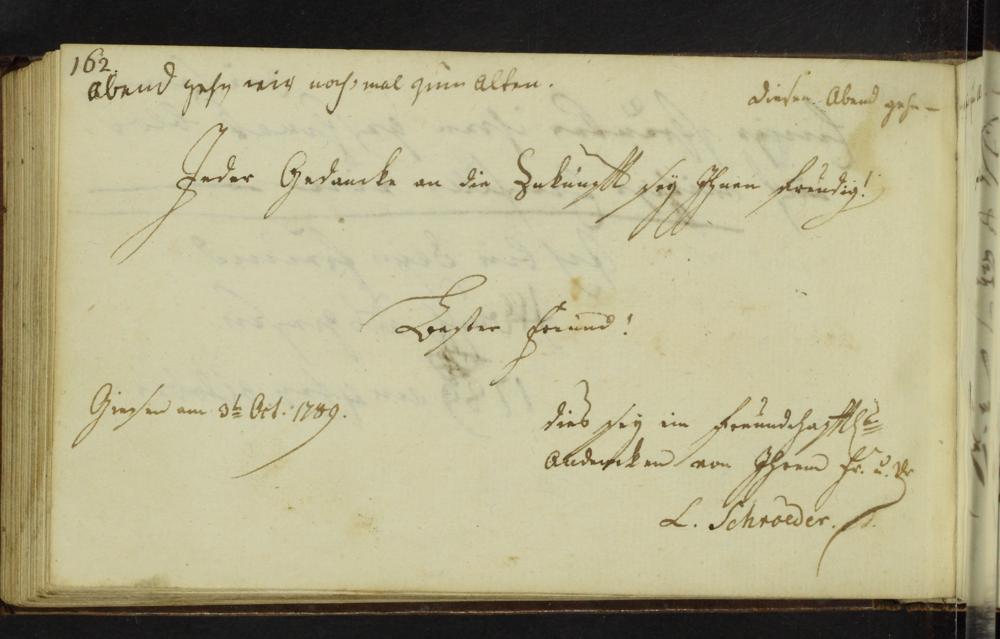 162.
Abend gehn wir nochmal zum Alten.
Diesen Abend gehn
Jeder Gedancke an die Zukunfft sey Ihnen freudig!
Bester Freund!
Giesen am 3t Oct. 1789.
dies sey im freundschafftl
Andencken von Ihrem Fr. u. Br
L. Schroeder.